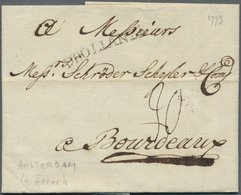 a Messieurs
1775
HOLLANDE
Mess.rs Schröder Schyler & Comp
C
30
a Bourdeaux
AMSTERDAM
in French